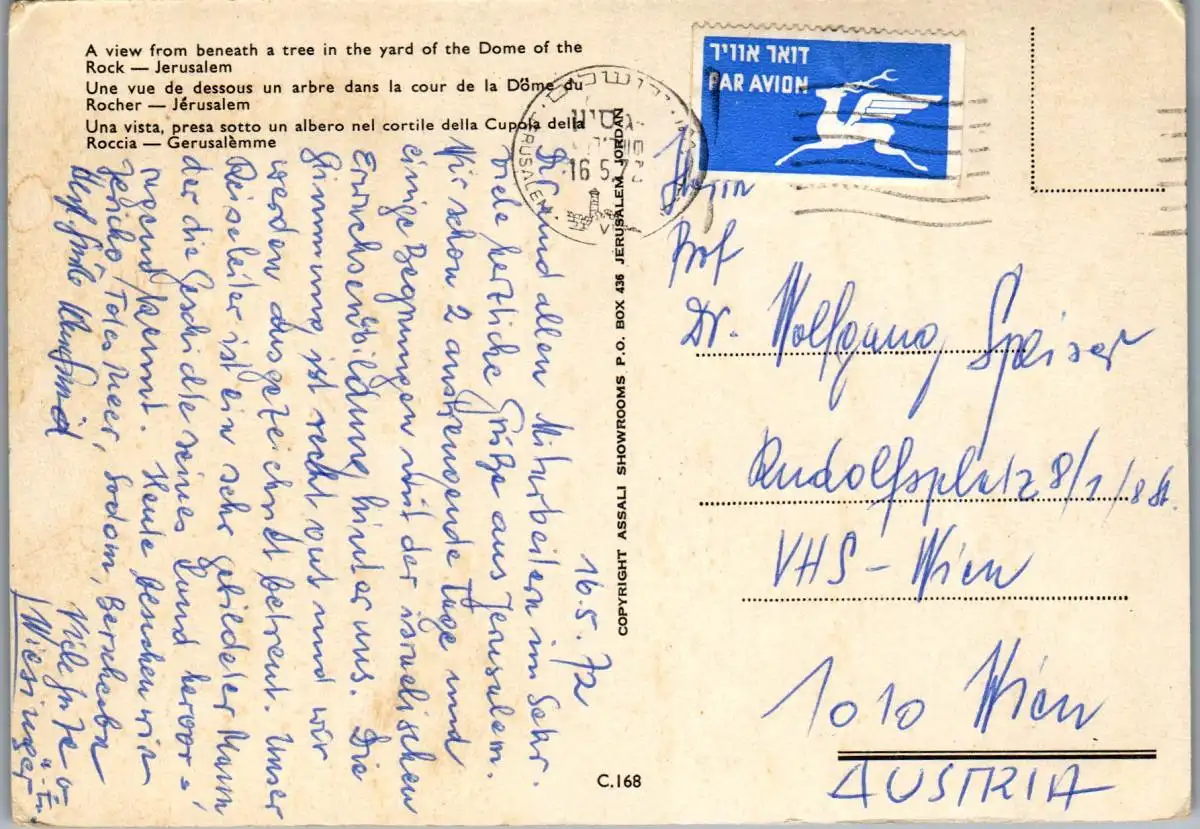 A view from beneath a tree in the yard of the Dome of the
Rock — Jerusalem
Une vue de dessous un arbre dans la cour de la Dôme du
Rocher — Jérusalem
Una vista, presa sotto un albero nel cortile della Cupola della
Roccia — Gerusalèmme
דואר אוויר
PAR AVION
ירושלים
JERUSALEM
16.5.72
16.5.72
Dir und allen Mitarbeitern im Sekr.
viele herzliche Grüße aus Jerusalem.
Wir schon 2 anstrengende Tage und
einige Begegnungen mit der israelischen
Erwachsenenbildung hinter uns. Die
Stimmung ist recht gut und wir
werden ausgezeichnet betreut. Unser
Reiseleiter ist ein sehr gebildeter Mann
der die Geschichte seines Land hervor-
ragend kennt. Heute besuchen wir
Jericho, Totes Meer, Sodom, Berscheba
Viele
Wiesinger
COPYRIGHT ASSALI SHOWROOMS P.O. BOX 436 JERUSALEM JORDAN
Herrn
Prof
Dr. Wolfgang Speiser
Rudolfsplatz 8/1/8 St.
VHS - Wien
1010 Wien
AUSTRIA
C.168